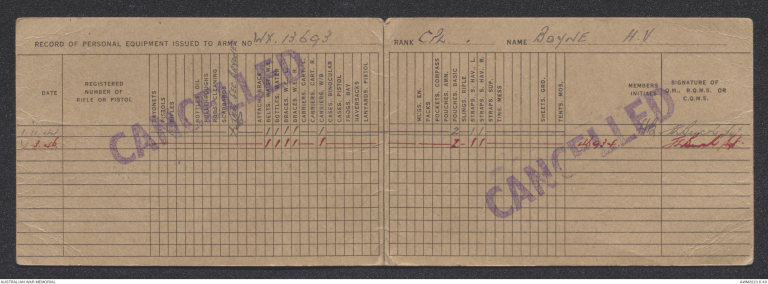 RECORD OF PERSONAL EQUIPMENT ISSUED TO ARMY NO WX. 13693
RANK CPL . NAME BOYNE H.V
DATE
REGISTERED
NUMBER OF
RIFLE OR PISTOL
BAYONETS
PISTOLS
RIFLES
BOTTLES OIL
PULLTHROUGHS
RODS, CLEANING
SCABBARDS
ATTACHS. BRACE
BELTS, WAIST, W.E.
BOTTLES, WATER
BRACES, W.E. L.
BRACES, W.E. R.
CARRIERS, CAPE
CARRIERS, W/B
CASES, BINOCULAR
CASES, PISTOL
FROGS, BAY.
HAVERSACKS
LANYARDS, PISTOL
MUGS, EN.
PACKS
POCKETS, COMPASS
POUCHES, AMN.
POUCHES, BASIC
SLINGS, RIFLE
STRAPS, S. HAV., L.
STRAPS, S. HAV., R.
STRAPS SUP.
TINS MESS
SHEETS, GRD.
TENTS, MOS.
MEMBERS
INITIALS
SIGNATURE OF
Q.M., R.Q.M.S. OR
C.Q.M.S.
1 1 1 1 1 2 1 1
1 1 1 1 1 2 1 1
CANCELLED
CANCELLED
AUSTRALIAN WAR MEMORIAL
AWM2023.8.49